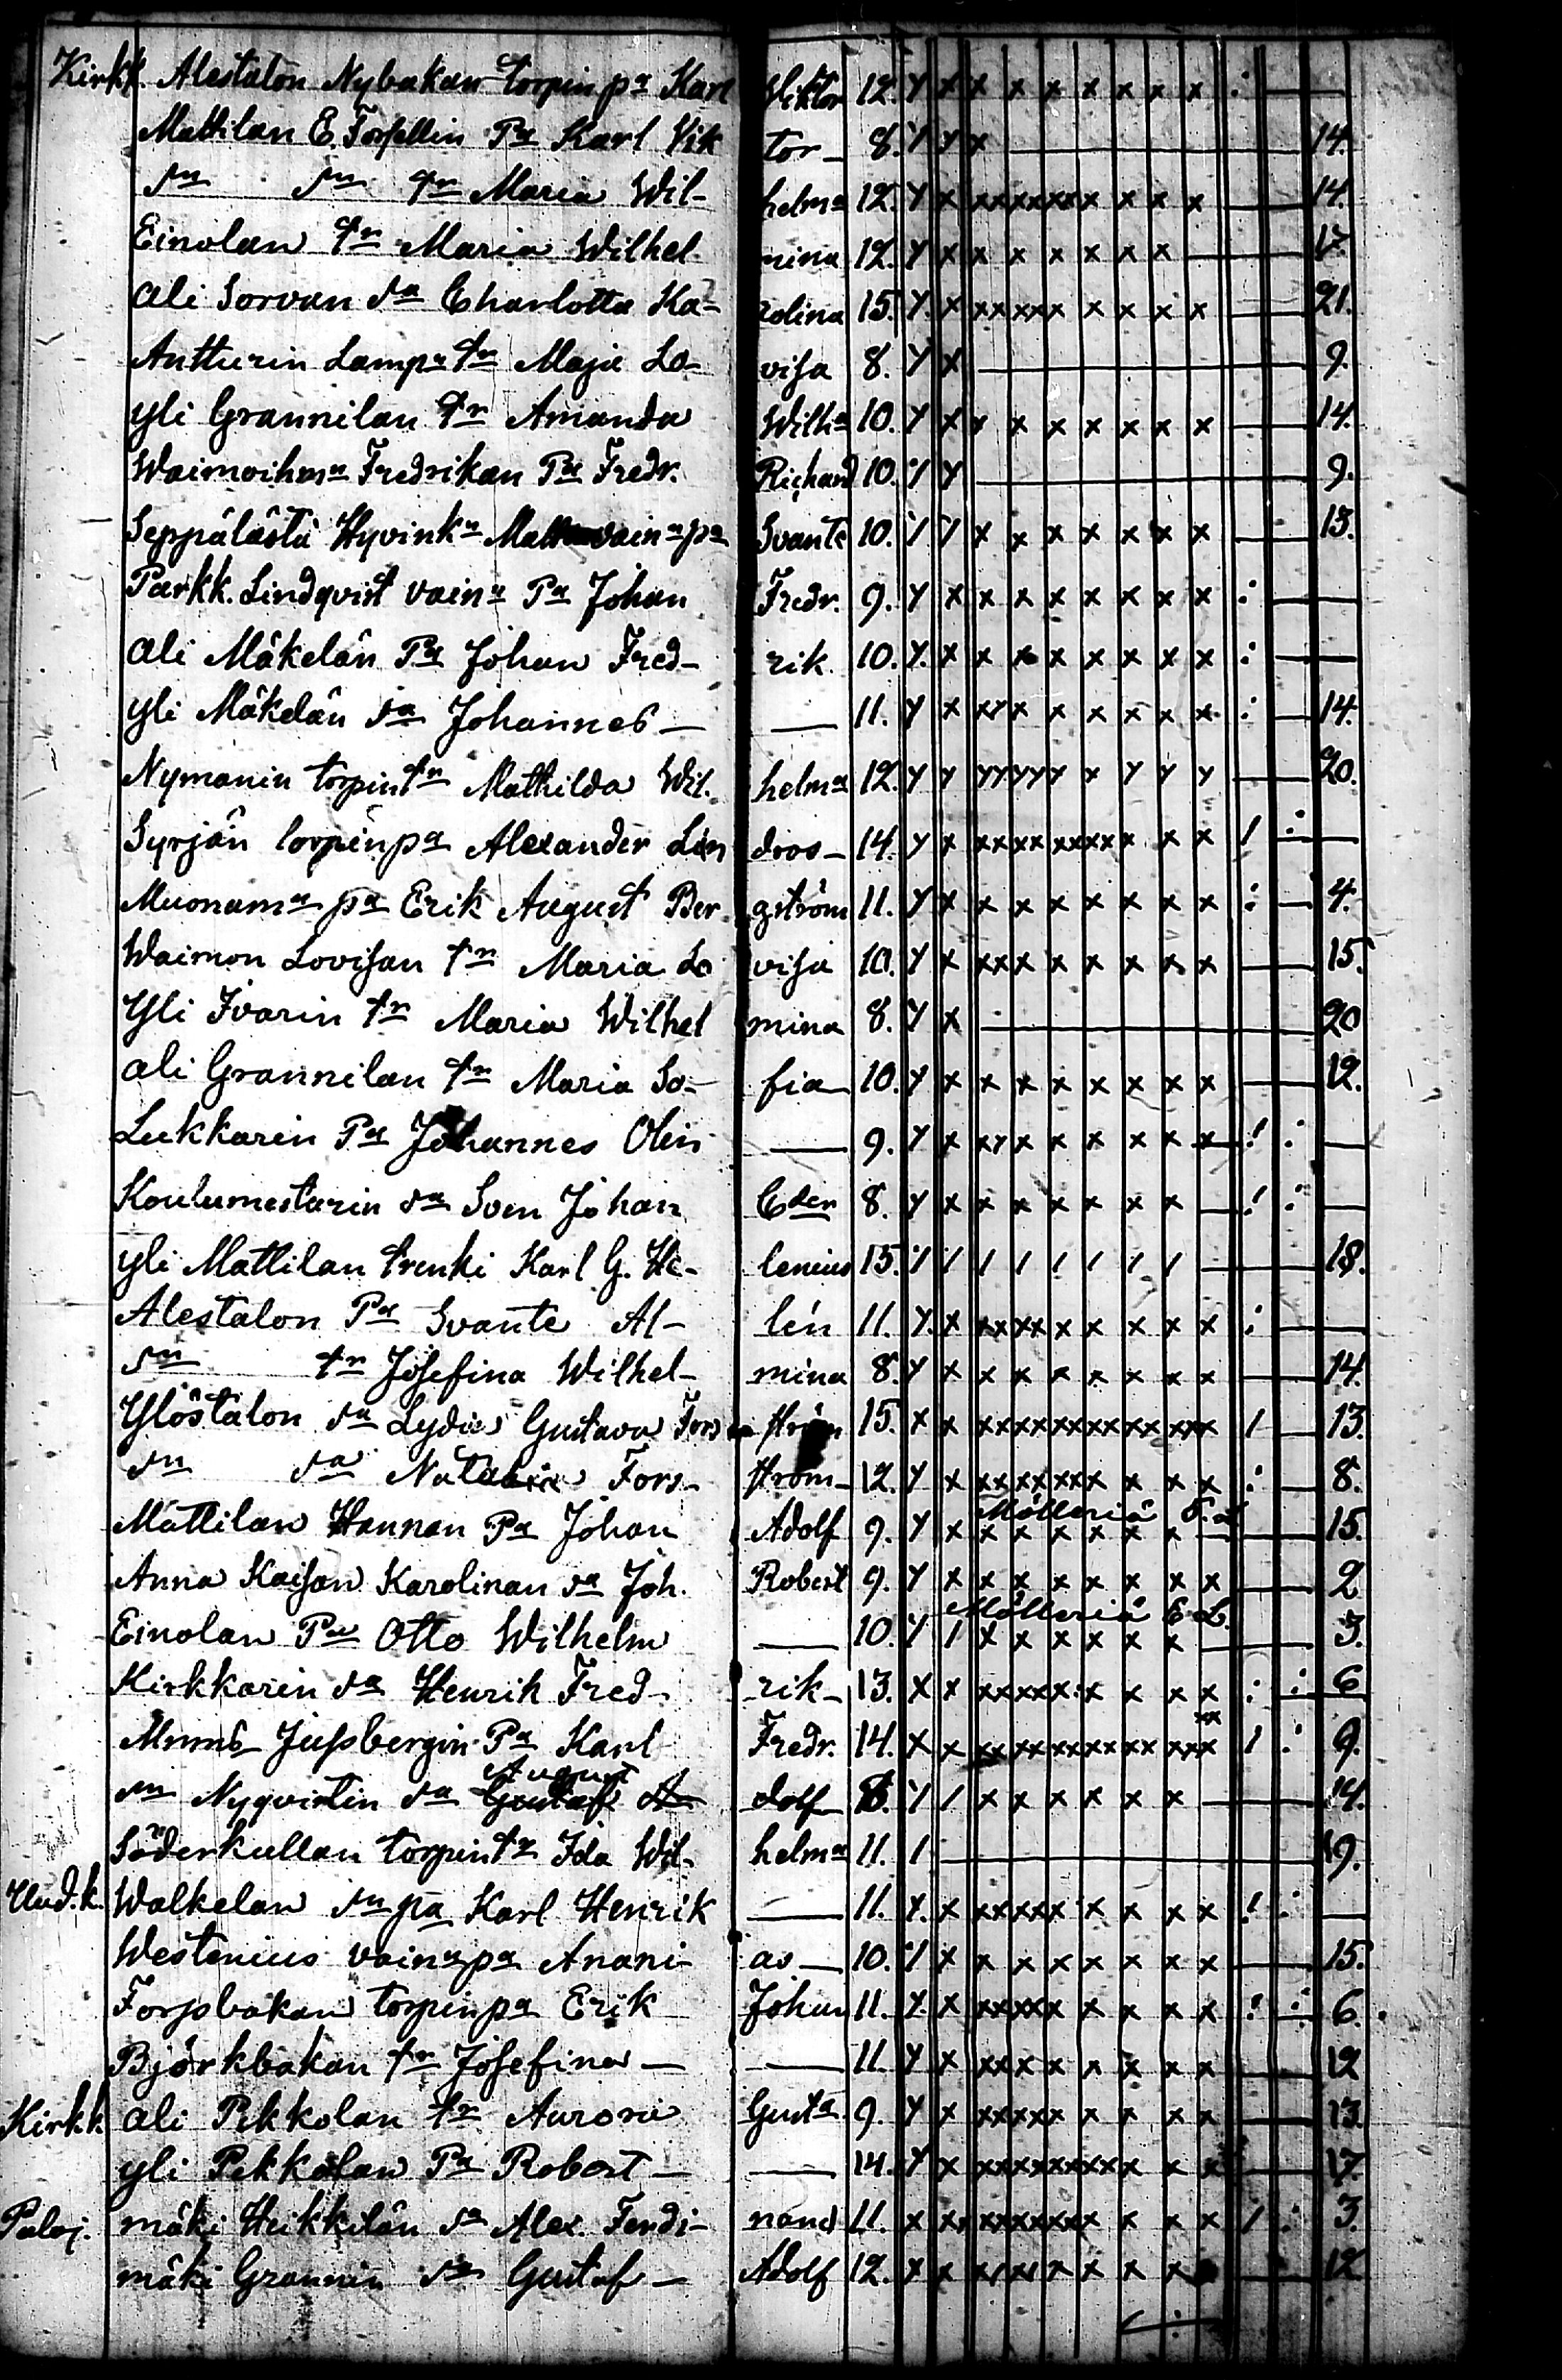 Kirkk. Alestalon Nybakan torpin pa Karl Viktor 12. y x x x x x x x x x : — —
Mattilan E. Forsellin Pa Karl Vik tor — 8. y y x — 14.
sm sm tr Maria Wil- helma 12. y x xx xx xx x x x x — 14.
Einolan tr Maria Wilhel- mina 12. y x x x x x x x — 17.
ali Sorvan sa Charlotta Ka- rolina 15. y. x xx xx x x x x x — 21.
Antturin Lampa tr Maja Lo- visa 8. y x — 9.
yli Grannilan tr Amanda Wilha 10. y x x x x x x x x — 14.
Waimoihma Fredrikan Pa Fredr. Richard 10. y y — 9.
Seppälästä Hyvinka vaina pa Svante 10. / / x x x x x x x — 13.
Parkk. Lindqvist vaina Pa Johan Fredr. 9. y x x x x x x x x : — —
ali Mäkelän Pa Johan Fred- rik 10. y. x x x x x x x x : — —
yli Mäkelän sa Johannes — — 11. y x xy x x x x x x : — 14.
Nymanin torpin tr Mathilda Wil- helma 12. y y yy yy y x y y y — 20.
Syrjän torpin pa Alexander Lin dros — 14. y x xx xx xx xx x x x / : —
Muonama pa Erik August Ber gström 11. y x x x x x x x x : — 4.
Waimon Lovisan tr Maria Lo visa 10. y x xx x x x x x x — 15.
Yli Ivarin tr Maria Wilhel mina 8. y x — 20
ali Grannilan tr Maria So- fia — 10. y x x x x x x x x — 12.
Lukkarin Pa Johannes Olin — 9. y x xy x x x x x x ! : —
Koulumestarin sa Sven Johan 8. y x x x x x x x — ! : —
yli Mattilan trenki Karl G. He- lenius 15. / / / / / / / / — 18.
Alestalon Pa Svante Al- lén 11. y. x xx xx x x x x x : — —
sm tr Josefina Wilhel- mina 8. y x x x x x x x x — 14.
Ylöstalon sa Lydia Gustava Fors ström 15. x x xx xx xx xx xx xxx / — 13.
sm sa Natalia Fors- ström — 12. y x xx xx xx x x x x : — 8.
Mattilan Hannan Pa Johan Adolf 9. y x Mölleriä x x x x x x — 15.
Anna Kaisan Karolinan sa Joh. Robert 9. y x x x x x x x x — 2
Einolan Pa Otto Wilhelm — 10. y / Mölleriä x x x x x x — 3.
Kirkkarin sa Henrik Fred- rik — 13. x x xx xx x x x x x : : 6
Mnms Jusbergin Pa Karl Fredr. 14. x x xx xx xx xx xx xxx / : 9.
sm Nyqvistin sa August dolf / / x x x x x x — 14.
Söderkullan torpin tr Ida Wil- helma 11. / — 19.
Uud.k. Walkelan sm pa Karl Henrik — 11. y. x xx xx x x x x x ! : —
Westenius vaina pa Anani- as — 10. / x x x x x x x x — 15.
Forsbakan torpin pa Erik Johan 11. y. x xx xx x x x x x ! : 6.
Björkbakan tr Josefina — — 11. y x xx x x x x x x — 12
Kirkk. ali Pekkolan tr Aurora Gusta 9. y x xx xx x x x x x — 13.
yli Pekkolan Pa Robert — — 14. y x xx xx xx xx x x x — 17.
Paloj. mäki Heikkilän sa Alex. Ferdi- nand 11. x x xx xx xx x x x x / : 3.
mäki Grannin sa Gustaf — Adolf 12. x x xx xx x x x x — 12